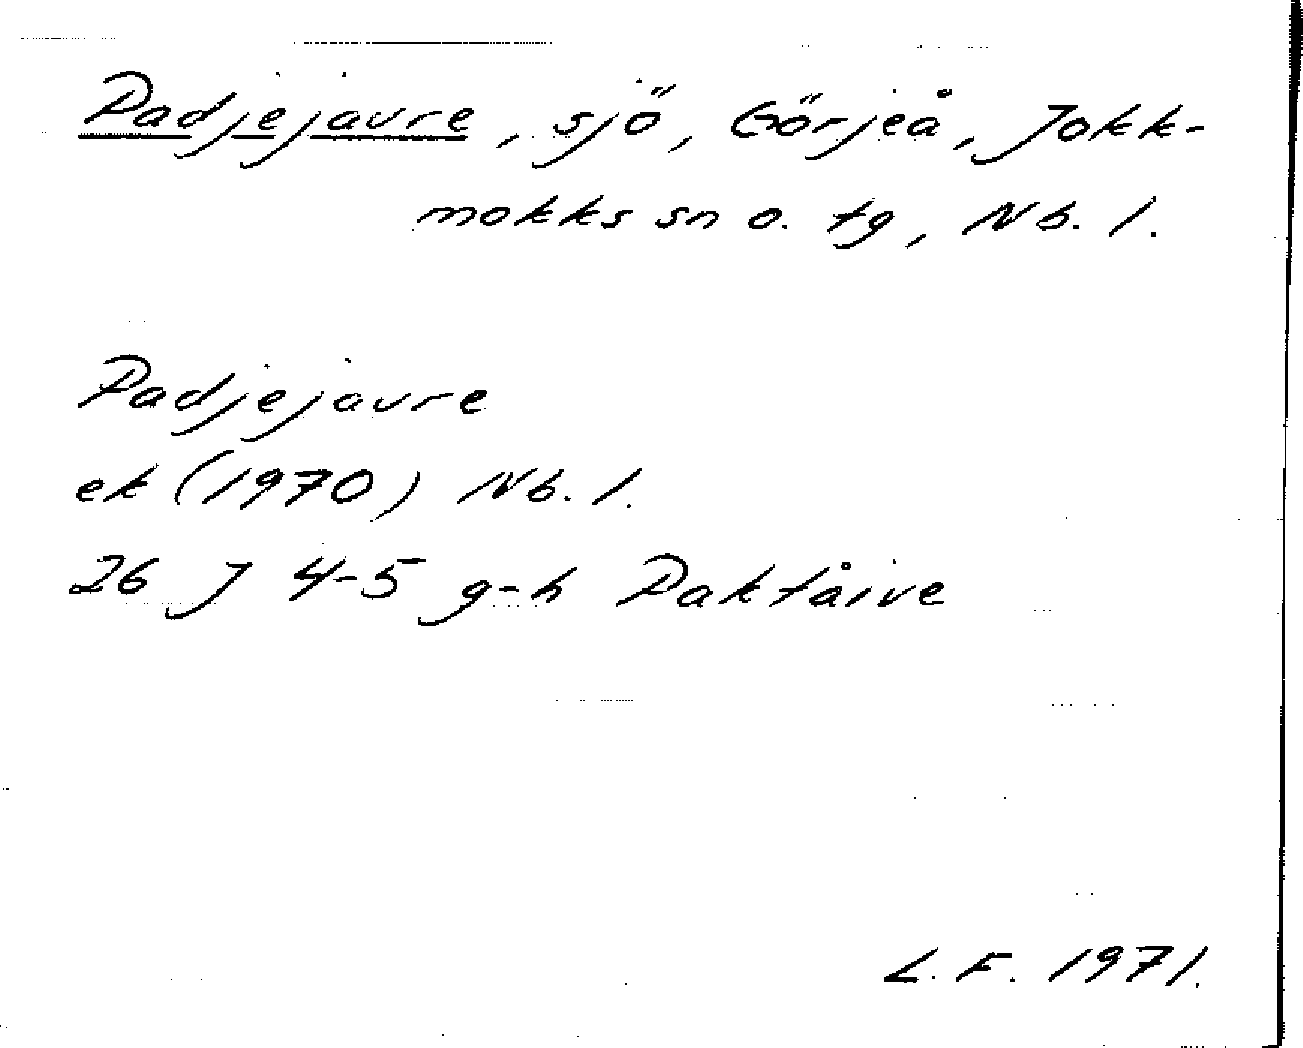 Padjejaure, sjö, Görjeå, Jokk-
mokks sn o. tg, Nb. l.
Padjejaure
ek (1970) Nb. l.
26 J 4-5 g-h Paktåive
L. F. 1971.